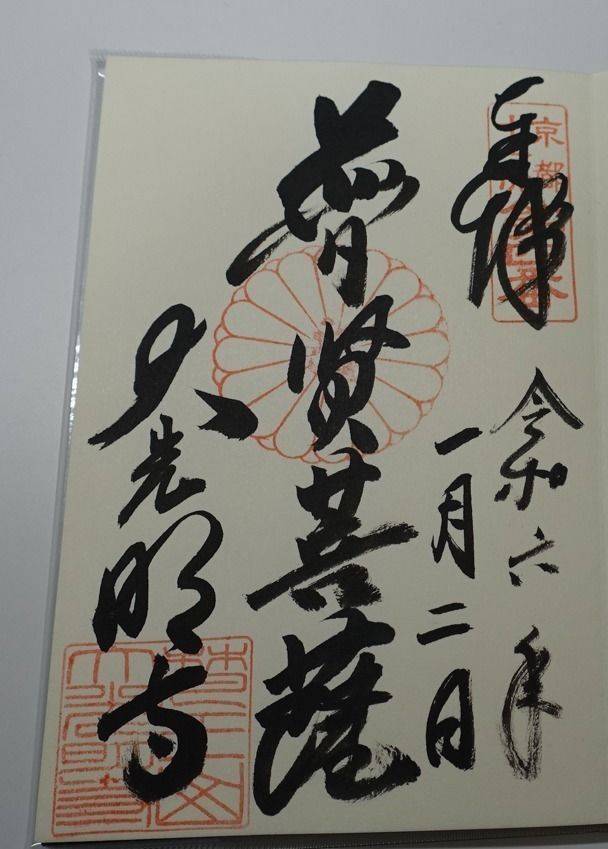 奉拝
京都
令和六年
一月二日
普賢菩薩
大光明寺